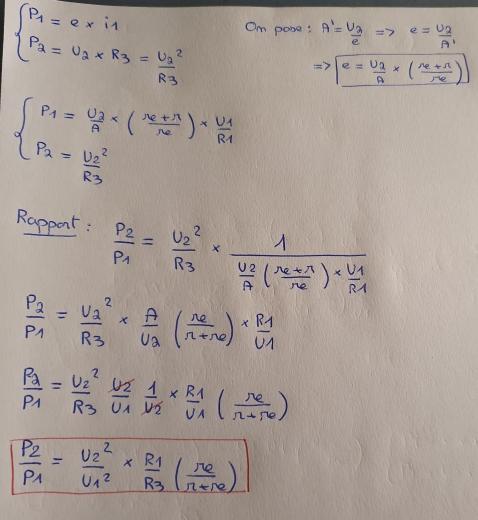 P1 = e × i1
P2 = U2 × R3 = U2²/R3
On pose : A' = U2/e => e = U2/A'
=> e = U2/A × (re+r/re)
P1 = U2/A × (re+r/re) × U1/R1
P2 = U2²/R3
Rapport : P2/P1 = U2²/R3 × 1/(U2/A (re+r/re) × U1/R1)
P2/P1 = U2²/R3 × A/U2 (re/r+re) × R1/U1
P2/P1 = U2²/R3 U2/U1 1/U2 × R1/U1 (re/r+re)
P2/P1 = U2²/U1² × R1/R3 (re/r+re)